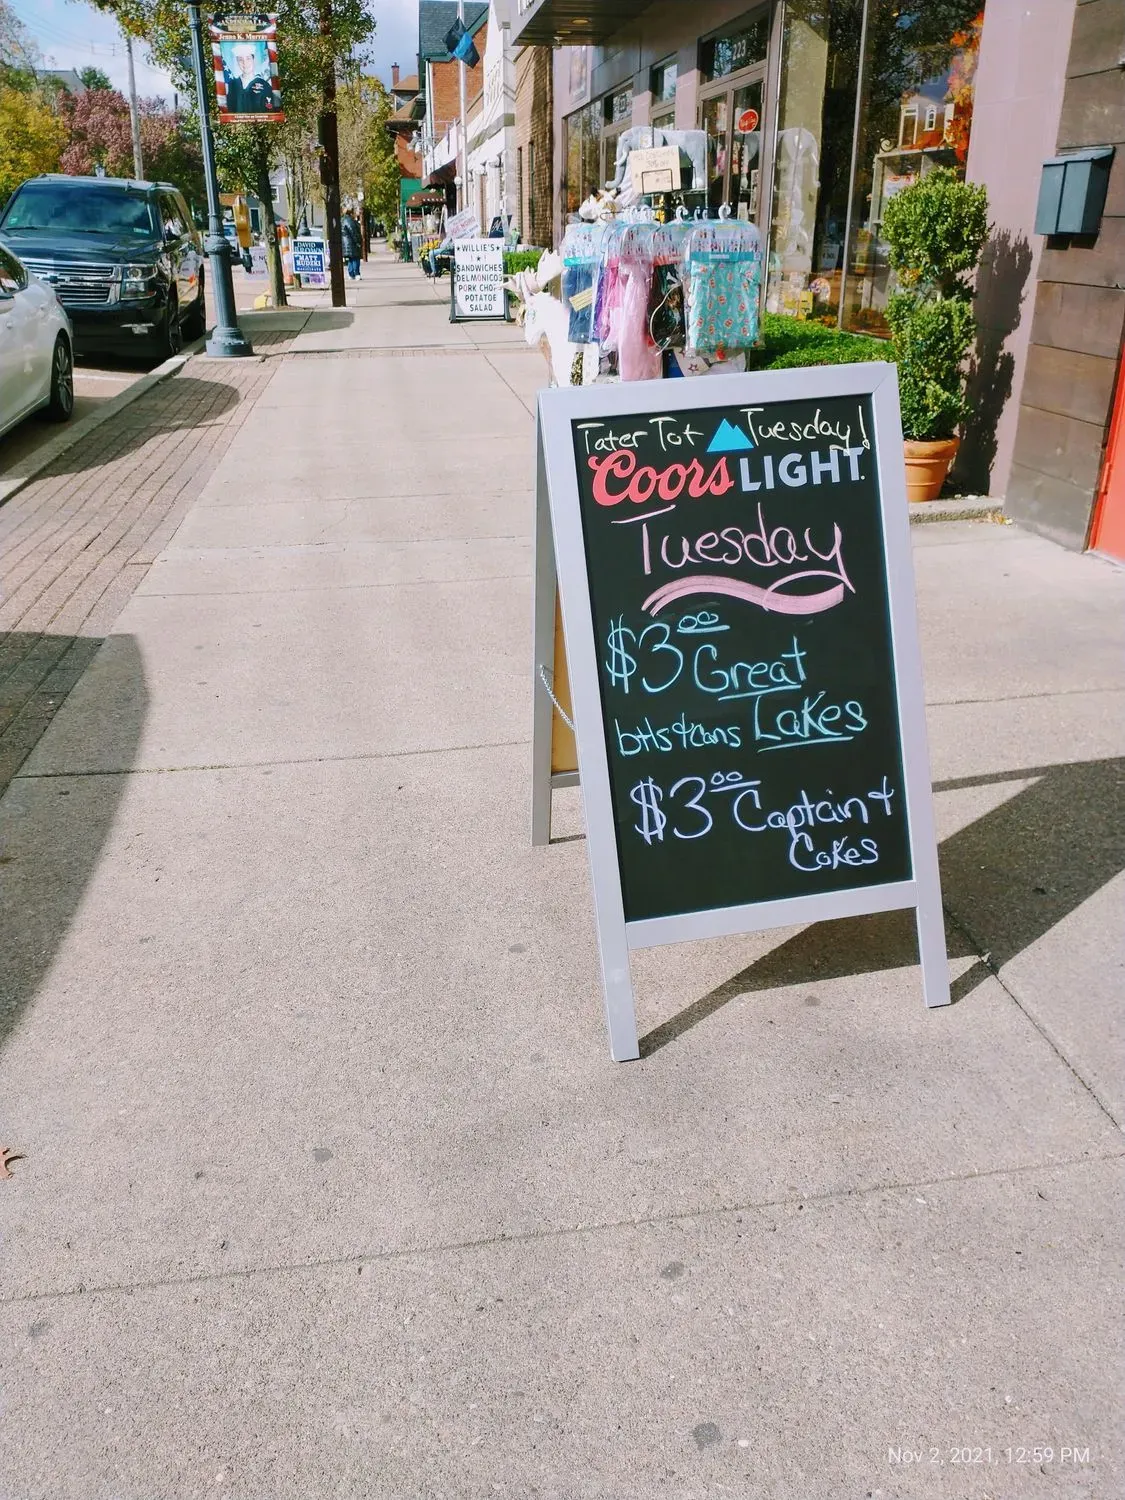 Jenno K. Murray
223
DAVID
BROWN
MATT
RUDZKI
WILLIE'S
SANDWICHES
DELMONICOS
PORK CHO
POTATOE
SALAD
Tater Tot Tuesday!
Coors LIGHT
Tuesday
$3.00 Great
btls & cans Lakes
$3.00 Captain &
Cokes
Nov 2, 2021, 12:59 PM